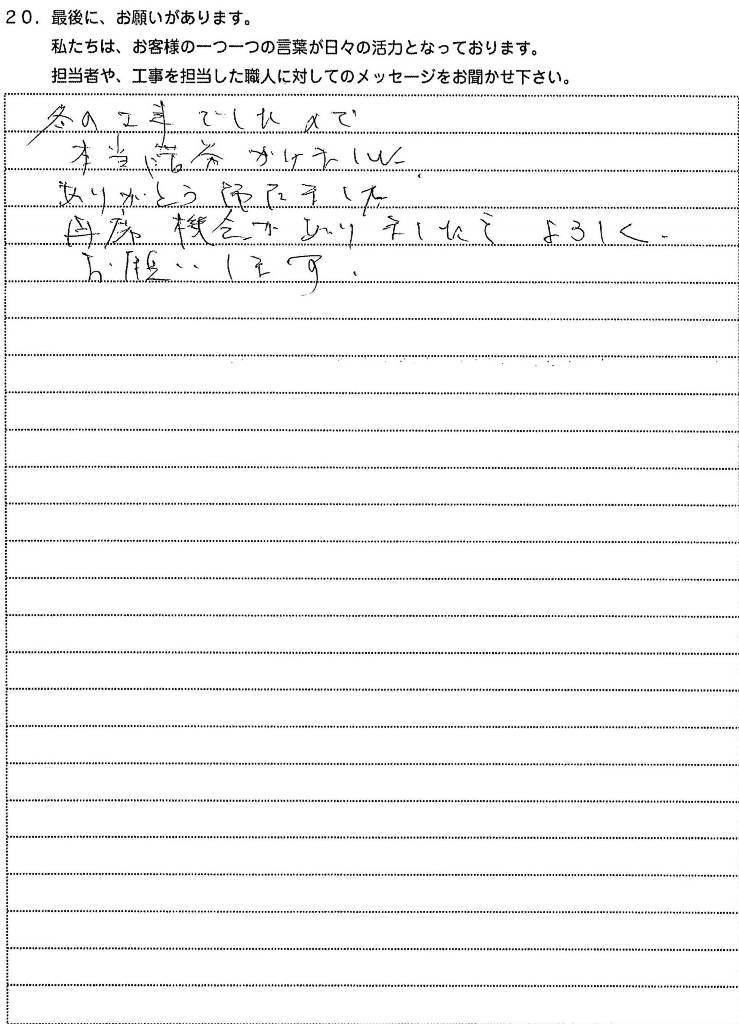 20. 最後に、お願いがあります。
私たちは、お客様の一つ一つの言葉が日々の活力となっております。
担当者や、工事を担当した職人に対してのメッセージをお聞かせ下さい。
冬の工事でしたので
本当に苦労かけました
ありがとう御座ました
再度機会がありましたらよろしく
お願いします.